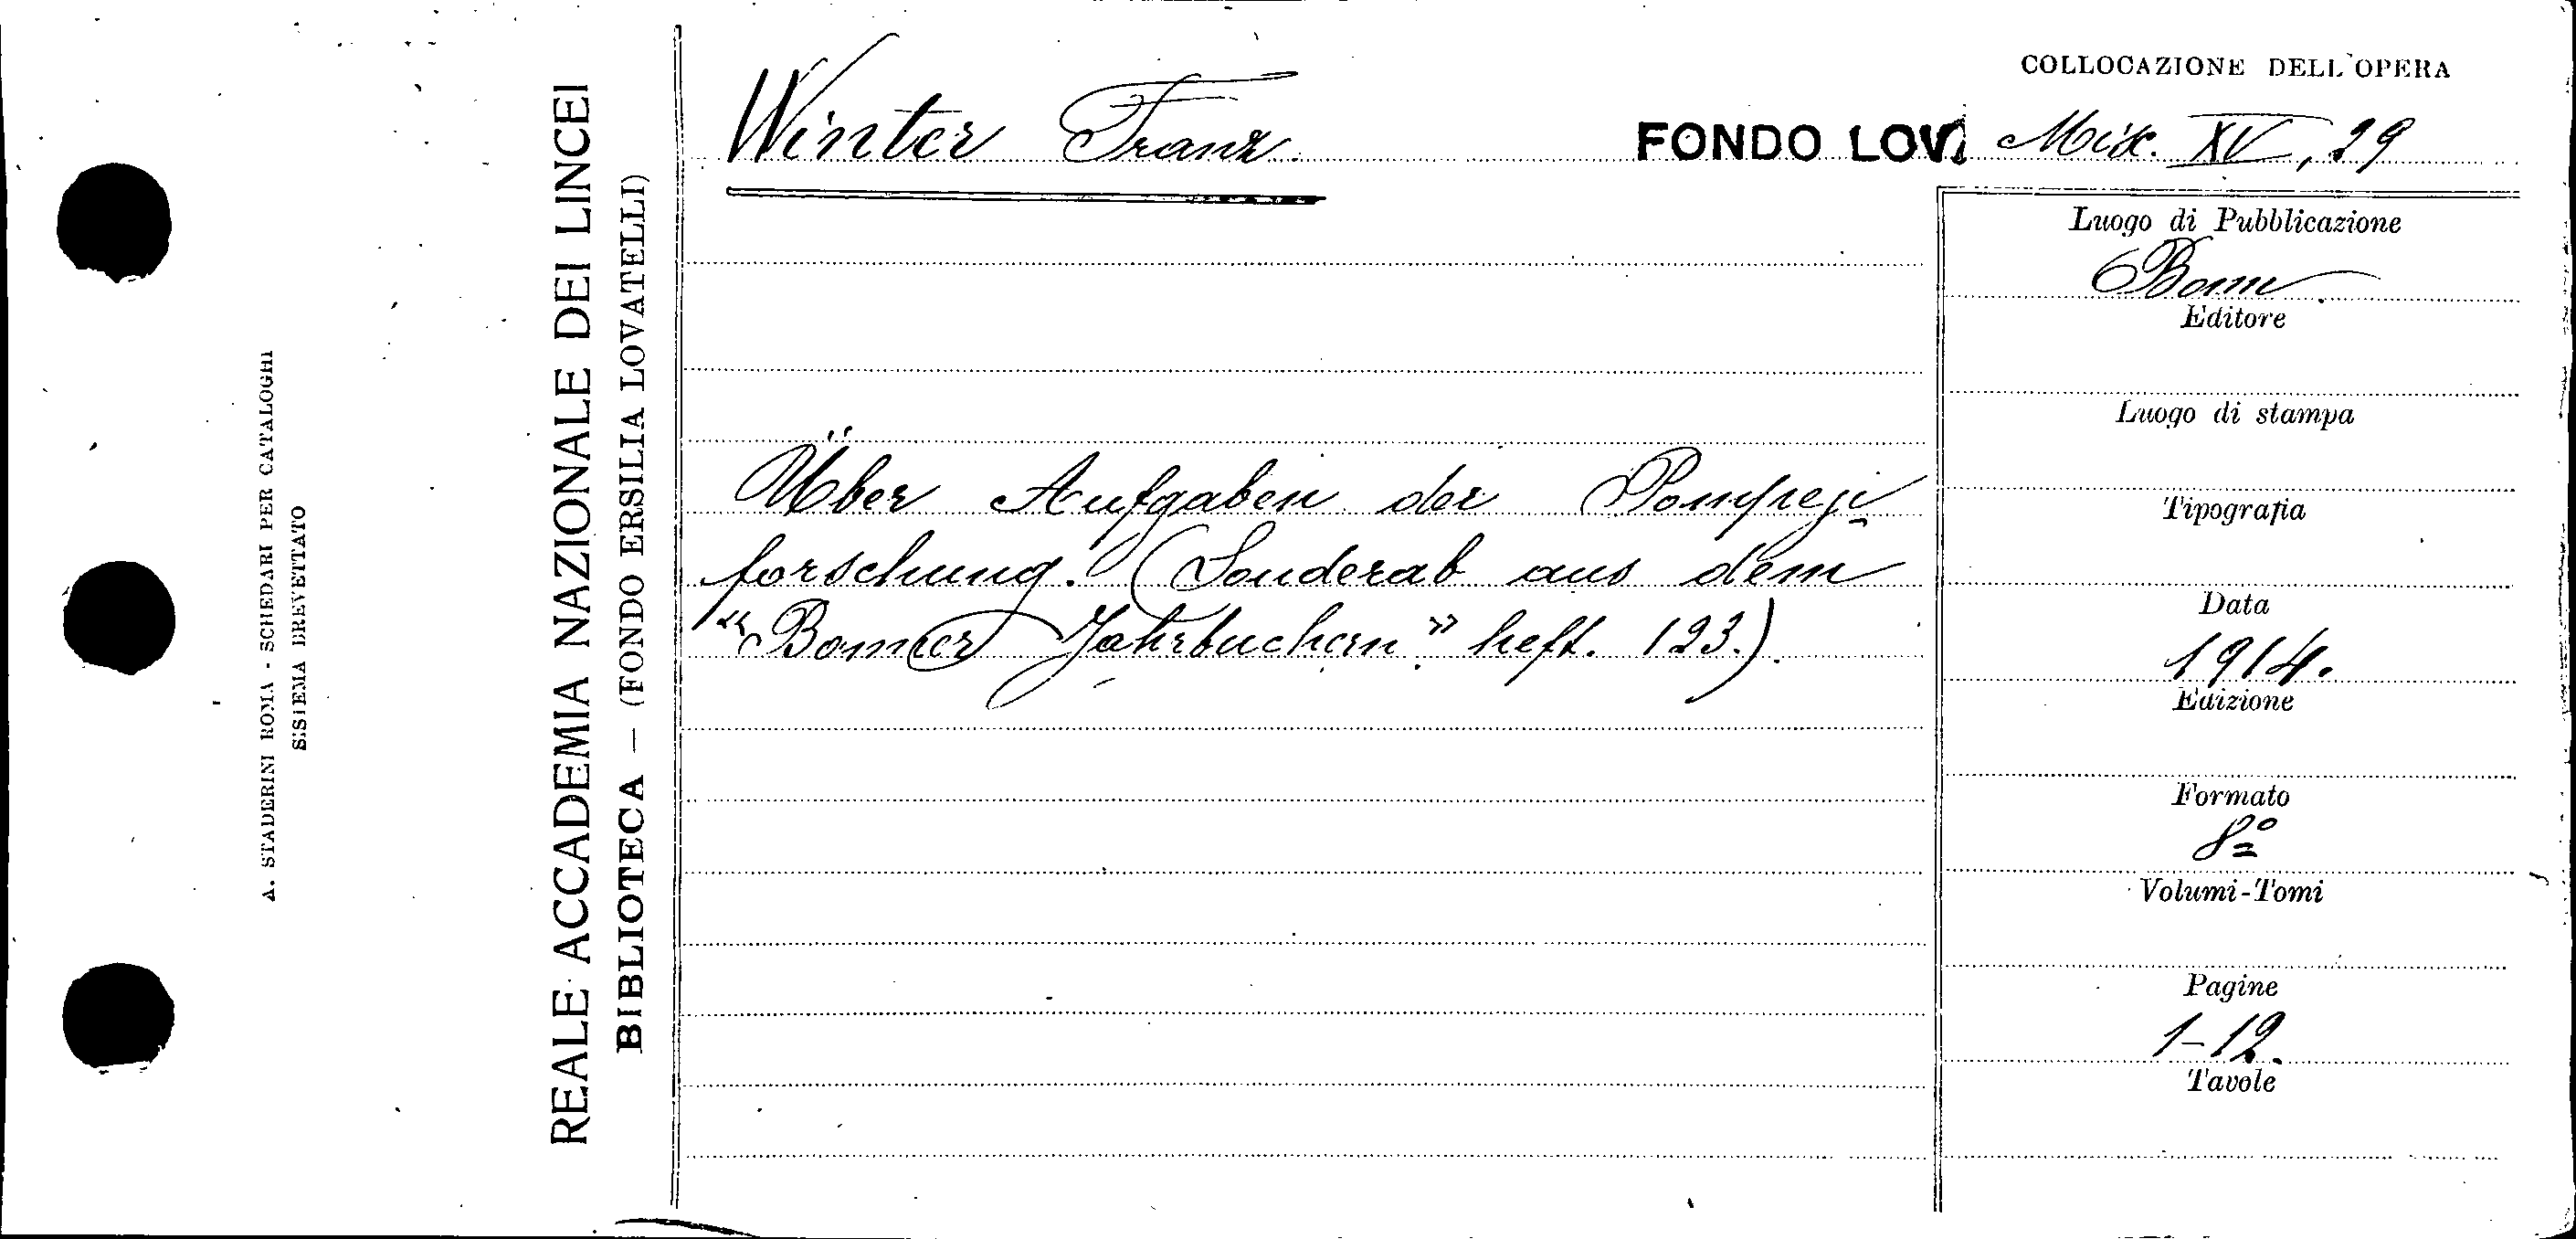 A. STADERINI ROMA - SCHEDARI PER CATALOGHI
SISTEMA BREVETTATO
REALE ACCADEMIA NAZIONALE DEI LINCEI
BIBLIOTECA — (FONDO ERSILIA LOVATELLI)
COLLOCAZIONE DELL'OPERA
Winter Franz
FONDO LOV. Misc. XV, 29
Über Aufgaben der Pompeji
forschung. (Sonderab aus dem
"Bonner Jahrbuchern" heft. 123.)
Luogo di Pubblicazione
Bonn
Editore
Luogo di stampa
Tipografia
Data
1914.
Edizione
Formato
8º
Volumi-Tomi
Pagine
1-12.
Tavole